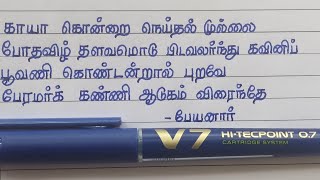 காயா கொன்றை நெய்தல் முல்லை
போதவிழ் தளவமொடு பிடவலர்ந்து கவினிப்
பூவணி கொண்டன்றால் புறவே
பேரமர்க் கண்ணி ஆடுகம் விரைந்தே
-பேயனார்
V7 HI-TECPOINT 0.7
CARTRIDGE SYSTEM